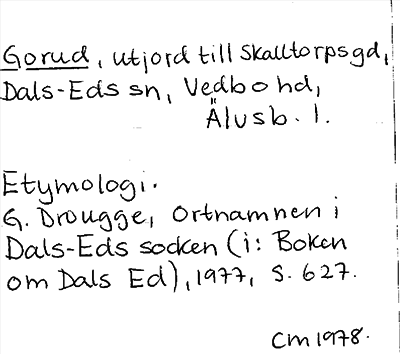 Gorud, utjord till Skalltorpsgd,
Dals-Eds sn, Vedbo hd,
Älvsb. l.
Etymologi.
G. Drougge, Ortnamnen i
Dals-Eds socken (i: Boken
om Dals Ed), 1977, s. 627.
CM 1978.